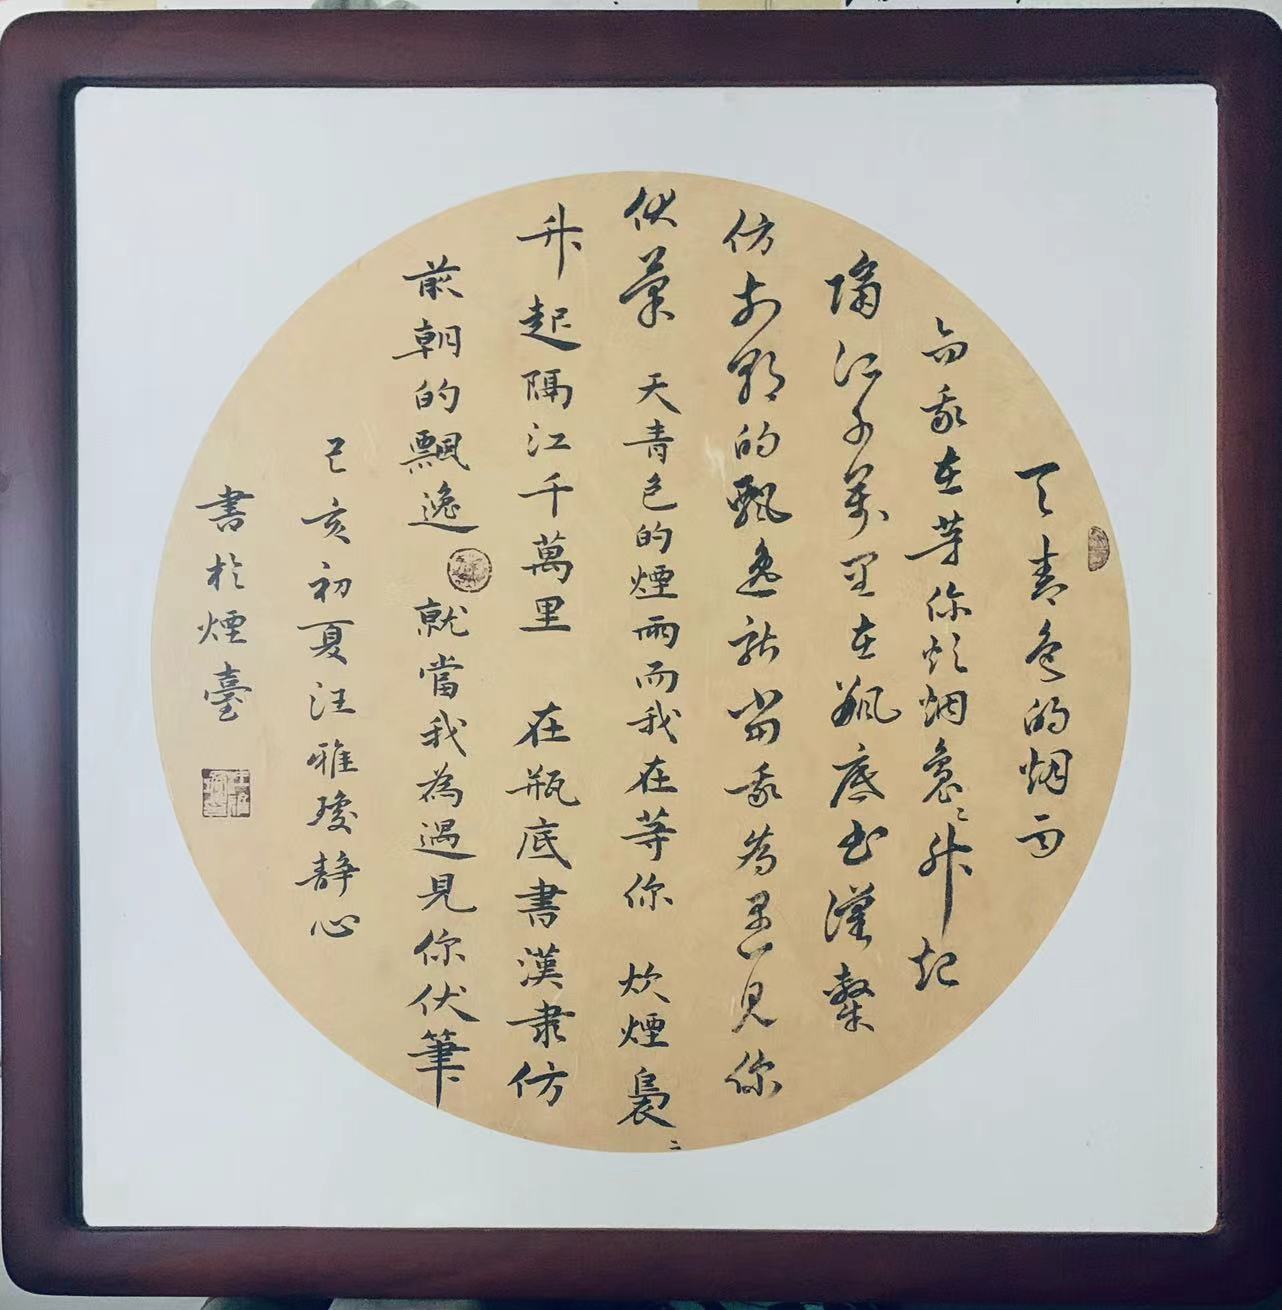 天青色的烟雨
而我在等你炊烟裊〻升起
隔江千万里在瓶底书漢隸
仿前朝的飘逸就当我为遇見你
伏筆 天青色的煙雨而我在等你 炊煙裊〻
升起隔江千萬里 在瓶底書漢隶仿
前朝的飄逸 就當我為遇見你伏筆
己亥初夏汪雅瓊静心
書於煙臺